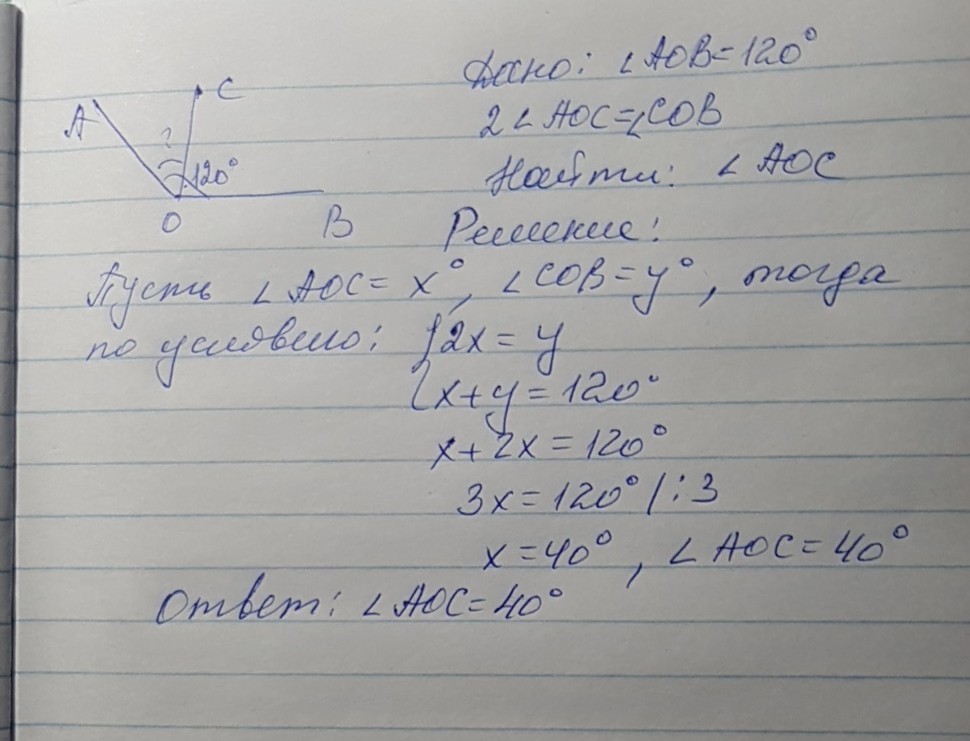 A
C
?
120°
O
B
Дано: ∠AOB=120°
2∠AOC=∠COB
Найти: ∠AOC
Решение:
Пусть ∠AOC=x°, ∠COB=y°, тогда
по условию: {2x=y
{x+y=120°
x+2x=120°
3x=120° /:3
x=40°, ∠AOC=40°
Ответ: ∠AOC=40°